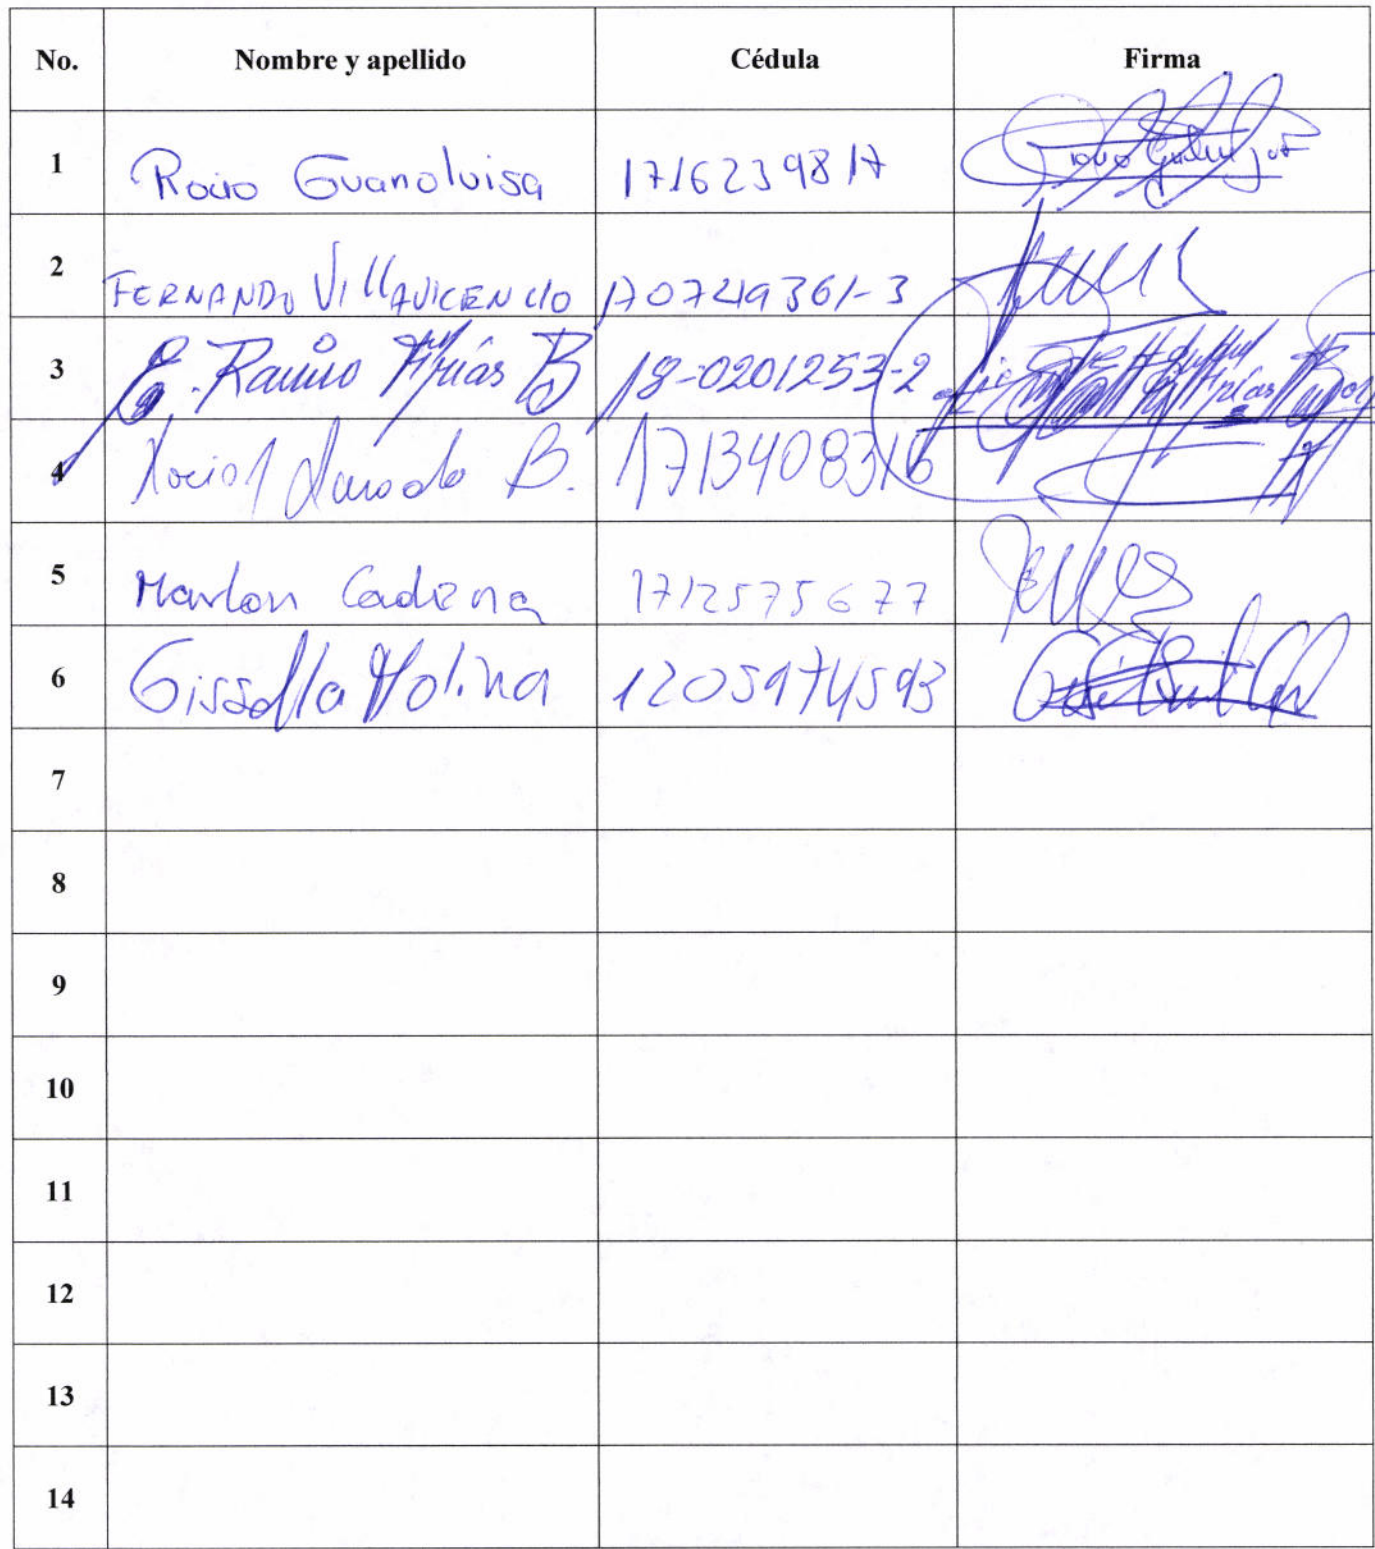 No. Nombre y apellido Cédula Firma
1 Rocio Guanoluisa 1716239817
2 FERNANDO VILLAVICENCIO 170749361-3
3 E. Ramiro Arias B 18-0201253-2
4 B. 1713408316
5 Marlon Cadena 1712575677
6 Gissella Molina 1205974593
7
8
9
10
11
12
13
14